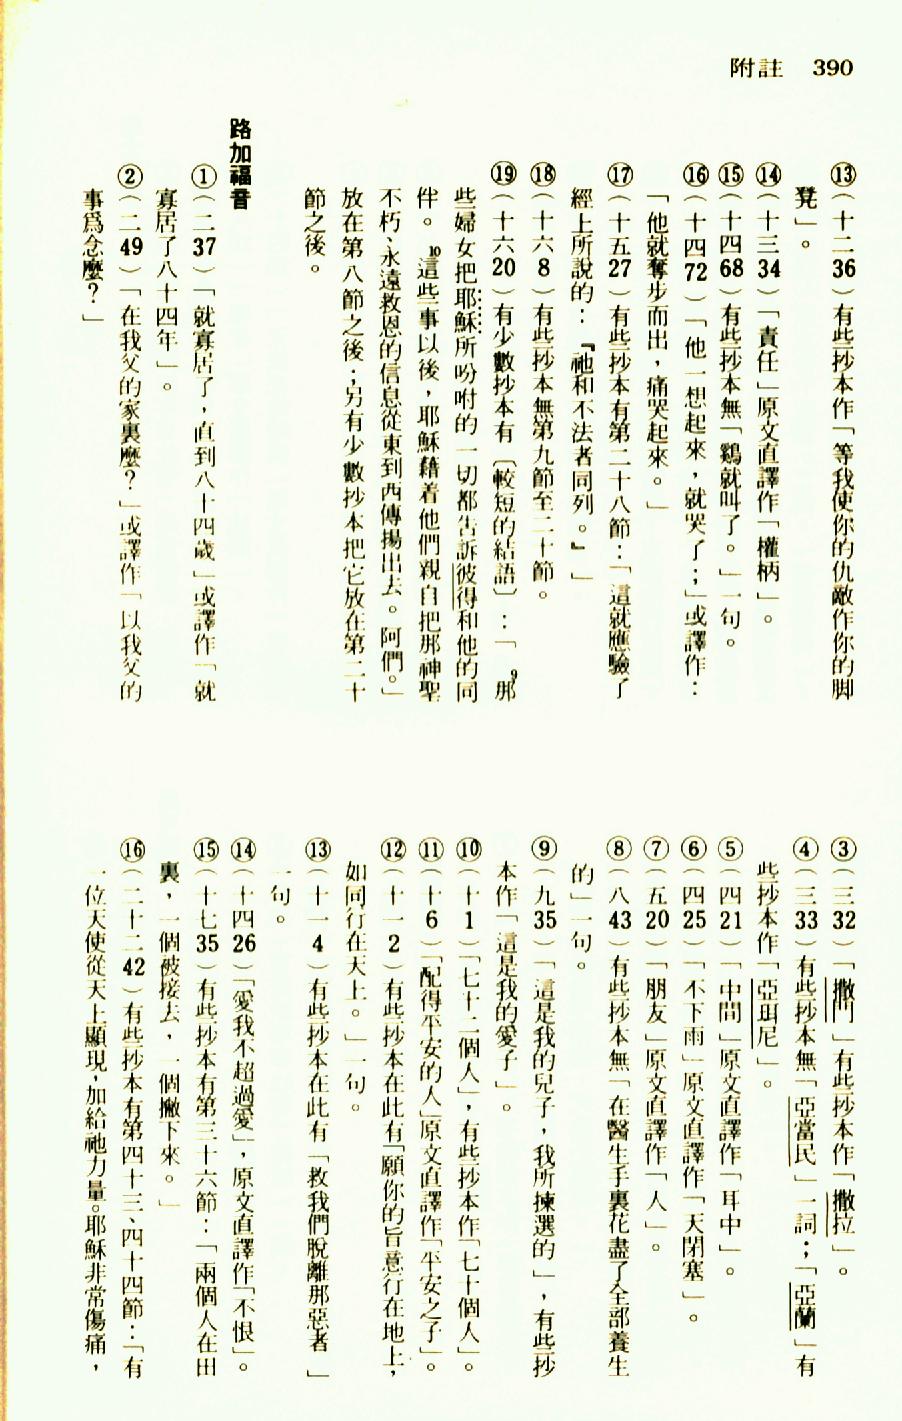 附註 390
⑬（十二36）有些抄本作「等我使你的仇敵作你的脚
凳」。
⑭（十三34）「責任」原文直譯作「權柄」。
⑮（十四68）有些抄本無「鷄就叫了。」一句。
⑯（十四72）「他一想起來，就哭了；」或譯作：
「他就奪步而出，痛哭起來。」
⑰（十五27）有些抄本有第二十八節：「這就應驗了
經上所說的：『祂和不法者同列。』」
⑱（十六8）有些抄本無第九節至二十節。
⑲（十六20）有少數抄本有〔較短的結語〕：「9那
些婦女把耶穌所吩咐的一切都告訴彼得和他的同
伴。10這些事以後，耶穌藉着他們親自把那神聖
不朽、永遠救恩的信息從東到西傳揚出去。阿們。」
放在第八節之後；另有少數抄本把它放在第二十
節之後。
路加福音
①（二37）「就寡居了，直到八十四歲」或譯作「就
寡居了八十四年」。
②（二49）「在我父的家裏麼？」或譯作「以我父的
事爲念麼？」
③（三32）「撒門」有些抄本作「撒拉」。
④（三33）有些抄本無「亞當民」一詞；「亞蘭」有
些抄本作「亞珥尼」。
⑤（四21）「中間」原文直譯作「耳中」。
⑥（四25）「不下雨」原文直譯作「天閉塞」。
⑦（五20）「朋友」原文直譯作「人」。
⑧（八43）有些抄本無「在醫生手裏花盡了全部養生
的」一句。
⑨（九35）「這是我的兒子，我所揀選的」，有些抄
本作「這是我的愛子」。
⑩（十1）「七十二個人」，有些抄本作「七十個人」。
⑪（十6）「配得平安的人」原文直譯作「平安之子」。
⑫（十一2）有些抄本在此有「願你的旨意行在地上，
如同行在天上。」一句。
⑬（十一4）有些抄本在此有「救我們脫離那惡者」
一句。
⑭（十四26）「愛我不超過愛」，原文直譯作「不恨」。
⑮（十七35）有些抄本有第三十六節：「兩個人在田
裏，一個被接去，一個撇下來。」
⑯（二十二42）有些抄本有第四十三、四十四節：「有
一位天使從天上顯現，加給祂力量。耶穌非常傷痛，